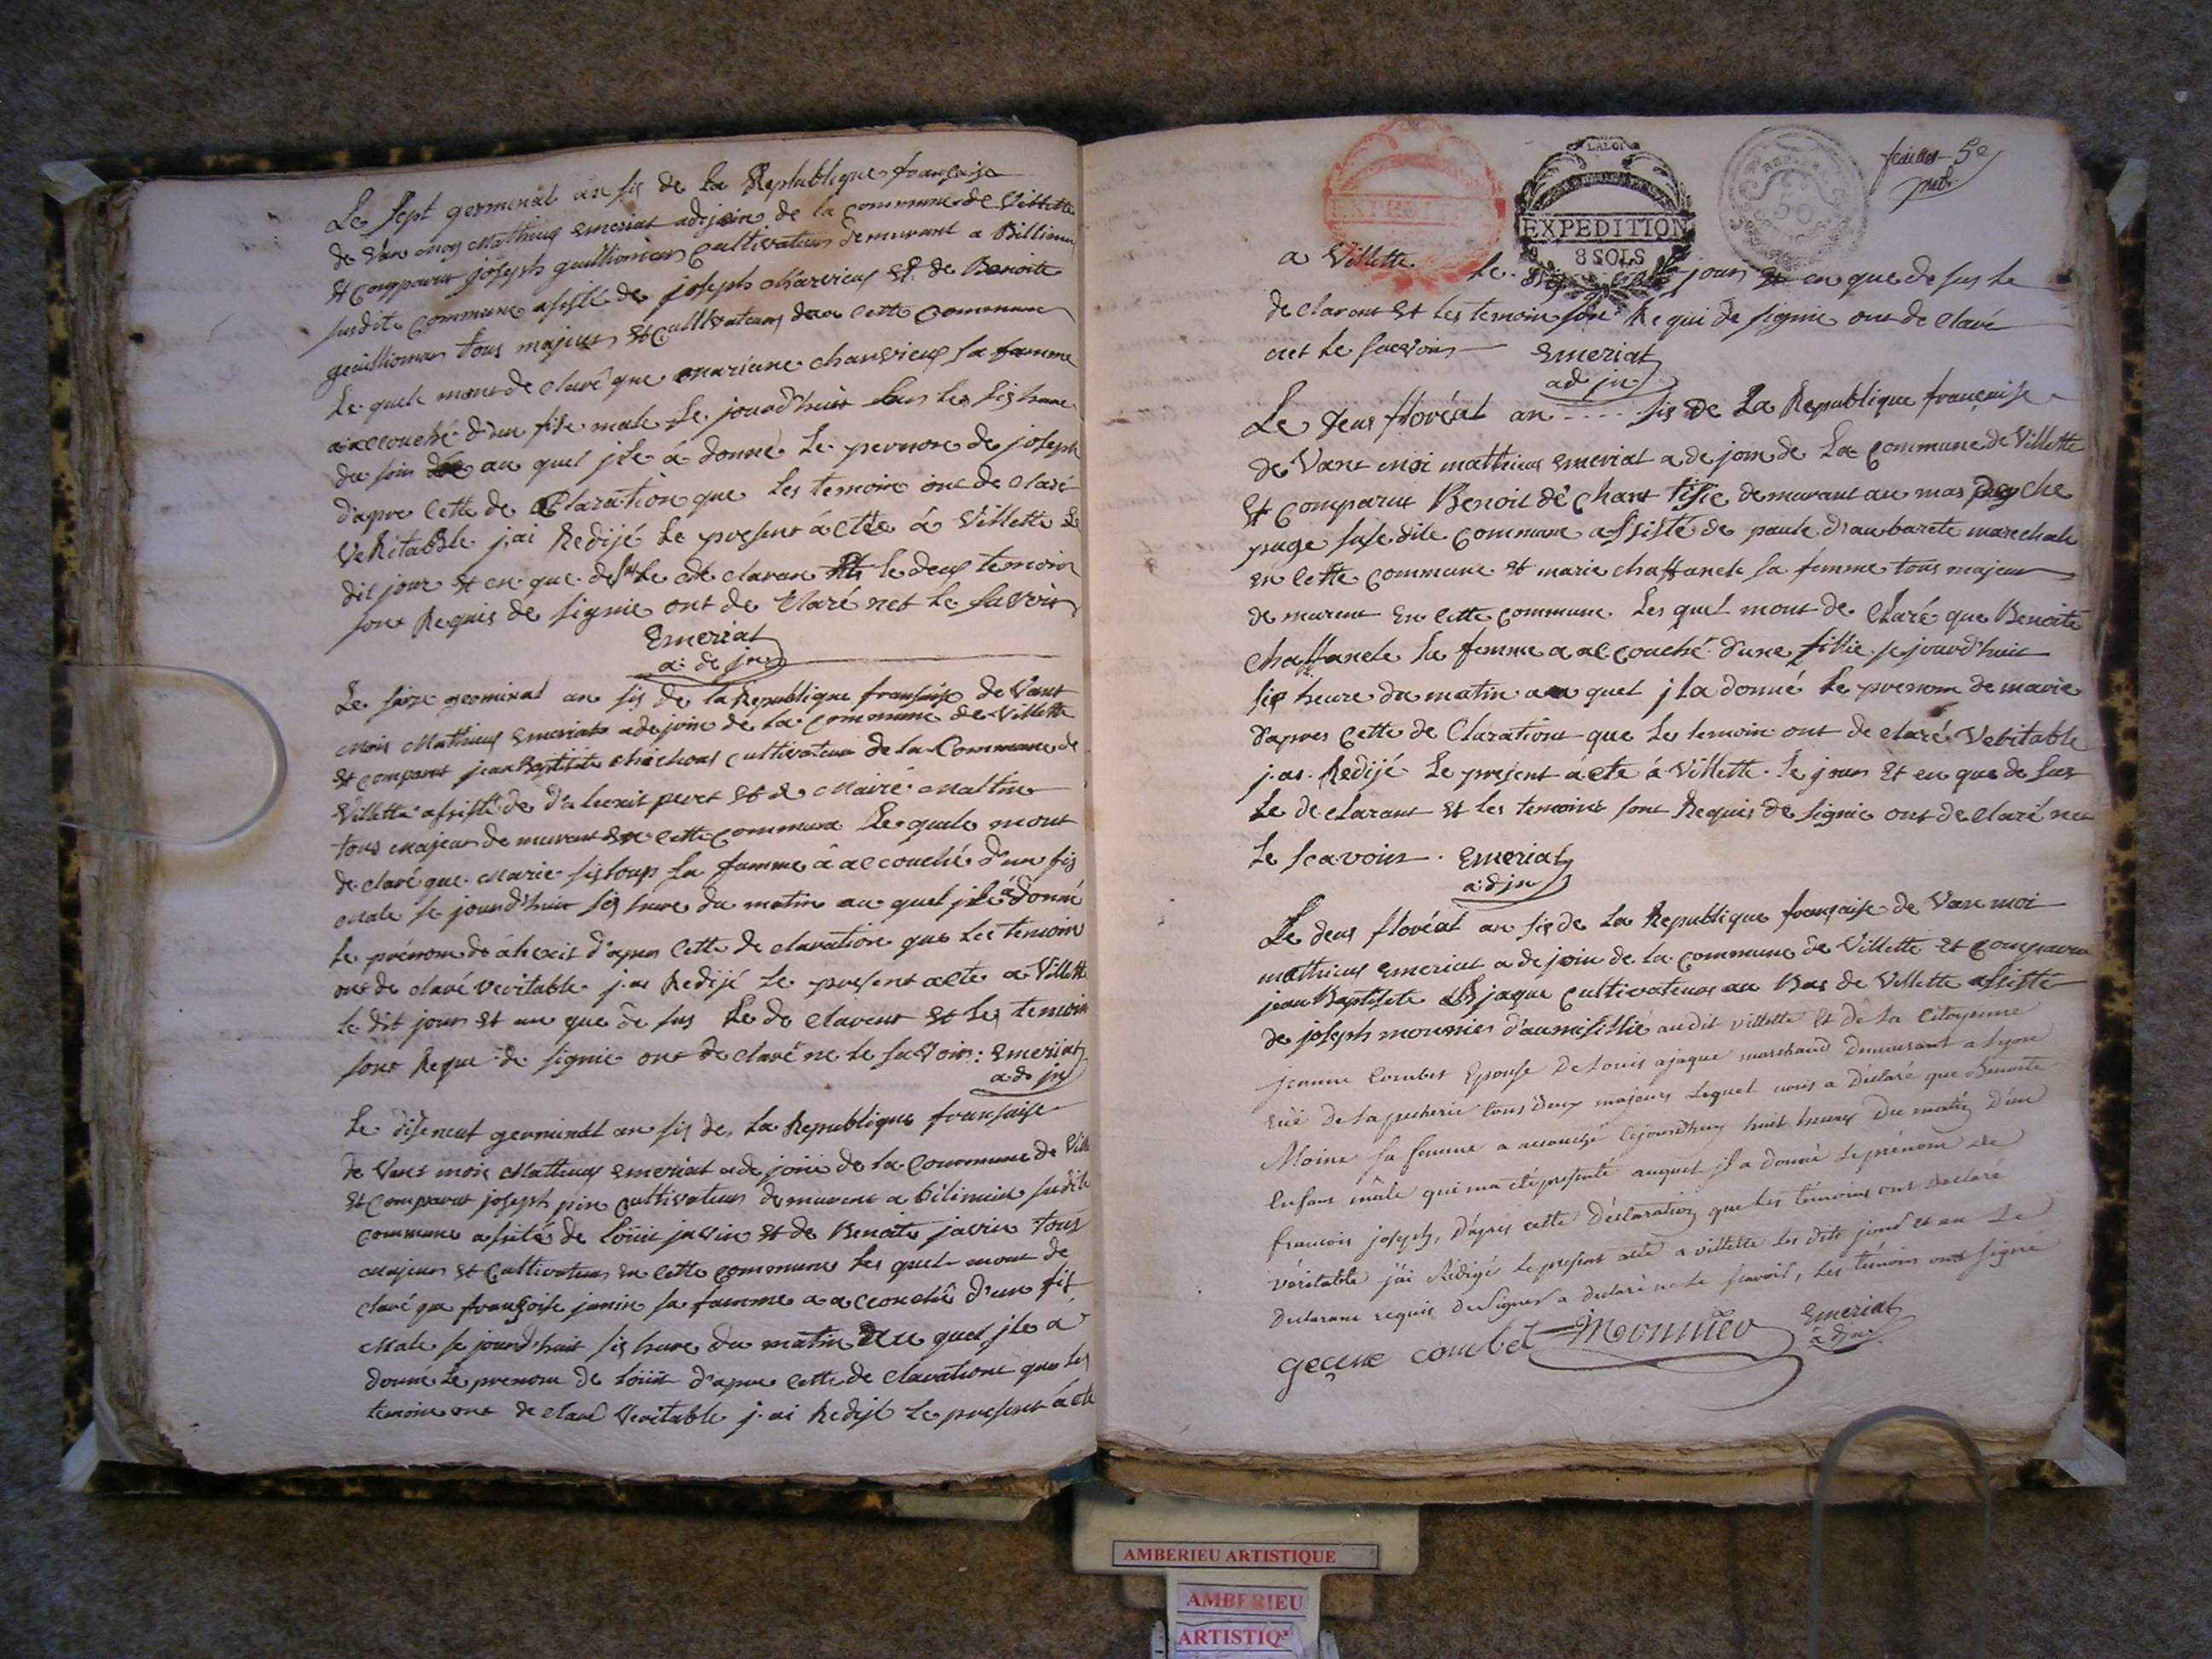 Le sept germinal an sis de La Republique francaise
de Van moy Mathieu Emeriat adejoin de la commune de Villette
Et comparut joseph guilliomen cultivateur demurant a Billieme
susdite commune assisté de joseph charvieux Et de Benoite
guillioman tous majeur Et cultivateurs de cette commune
Le quele mont de claré que mariane charvieux sa famme
a accouché d'un fise male Le jourd'huit sur les sis heure
du soir au quel jl a donné Le prenon de joseph
d'apre cette de claration que Les temoin ont de claré
Veritabble j'ai Redijé Le present actte à Villette Le
dit jour et en que desus Le de claran Et le deux temoin
sont Requis de signie ont de claré net Le savoir
Emeriat
a: de jn
Le saize germinal an sis de la Republique fransaise de Vant
mois Mathieu Emeriat adejoin de la commune de Villette
Et comparut jean Baptiste cultivateur de la Commune de
Villette assisté de peret et de Marie Mattin
tous majeur de murant En cette commune Le quele mont
de claré que Marie sisloup sa famme à accouché d'un fis
Male se jourd'huit sis heure du matin au quel jl a donné
Le prénom de d'apres cette de claration que Les temoin
ont de claré veritable j'ai Redijé Le present acte a Villette
Le dit jour Et an que de sus Le de clarent Et Les temoin
sont Reque de signie ont de claré ne Le savoir: Emeriat
a de jn
Le diseneut germinal an sis de La Republique fransaise
de Vant mois Mathieu Emeriat ade join de la Commune de Vill
Et Comparut joseph cultivateur demurent a bilimin sudite
commune asité de Loüit javin Et de Benoite javin tous
majeur Et Cultivateur En cette commune Les quel mont de
claré que françoise janin sa famme a accouché d'un fis
Male se jourd'huit sis heure du matin au quel jl a
donné Le prenom de Loüit d'apre cette de claration que Les
temoin ont de claré Veritable j'ai Redijé Le present acte
feuillet 5e
LA LOI
EXPEDITION
8 SOLS
50
a Villette Le jour en que de sus Le
de clarant Et Les temoin sont Requi de signie ont de claré
net Le scavoir Emeriat
ad jn
Le deus floréal an .... sis de La Republique française
de Vant moi mathieu Emeriat a de join de La Commune de Villette
Et Comparut Benoit demurant au mas
page suse dite commune assisté de paule d'aubarete marechale
en cette commune Et marie chaffanele sa femme tous majeur
de murent En cette commune Les quel mont de claré que Benoite
chaffanele sa femme a accouché d'une fillie se jourd'huit
sis heure du matin a quel jl a donné Le prenom de marie
d'apres Cette de Claration que Le temoin ont de claré Veritable
j'ai Redijé Le present acte à Villette Le jour Et en que de sus
Le de clarant Et Les temoins sont Requis de signie ont de claré ne
Le scavoir. Emeriat
a: d jn
Le deus floréal an sis de La Republique française de Van moi
mathieu Emeriat a de join de la commune de Villette Et comparu
jean Baptiste jaque Cultivateur au Bas de Villette assisté
de joseph mounier audit villette et de la Citoyenne
jeanne Combet Epouse de Louis ajaque marchand demeurant a Lyon
ruë de Lapecherie tous deux majeurs Lequel nous a declaré que Benoite
Moine sa femme a accouché cejourd'huy huit heures du matin d'un
enfant mâle qui m'a été presenté auquel jl a donné le prénom de
francois joseph, d'après cette déclaration que les témoins ont declaré
véritable j'ai Redigé Le present acte a villette les dits jour et an Le
declarant requis de signer a declaré ne le scavoir, les témoins ont signé
geane combet Mounier Emeriat
a djn
AMBERIEU ARTISTIQUE
AMBERIEU
ARTISTIQ